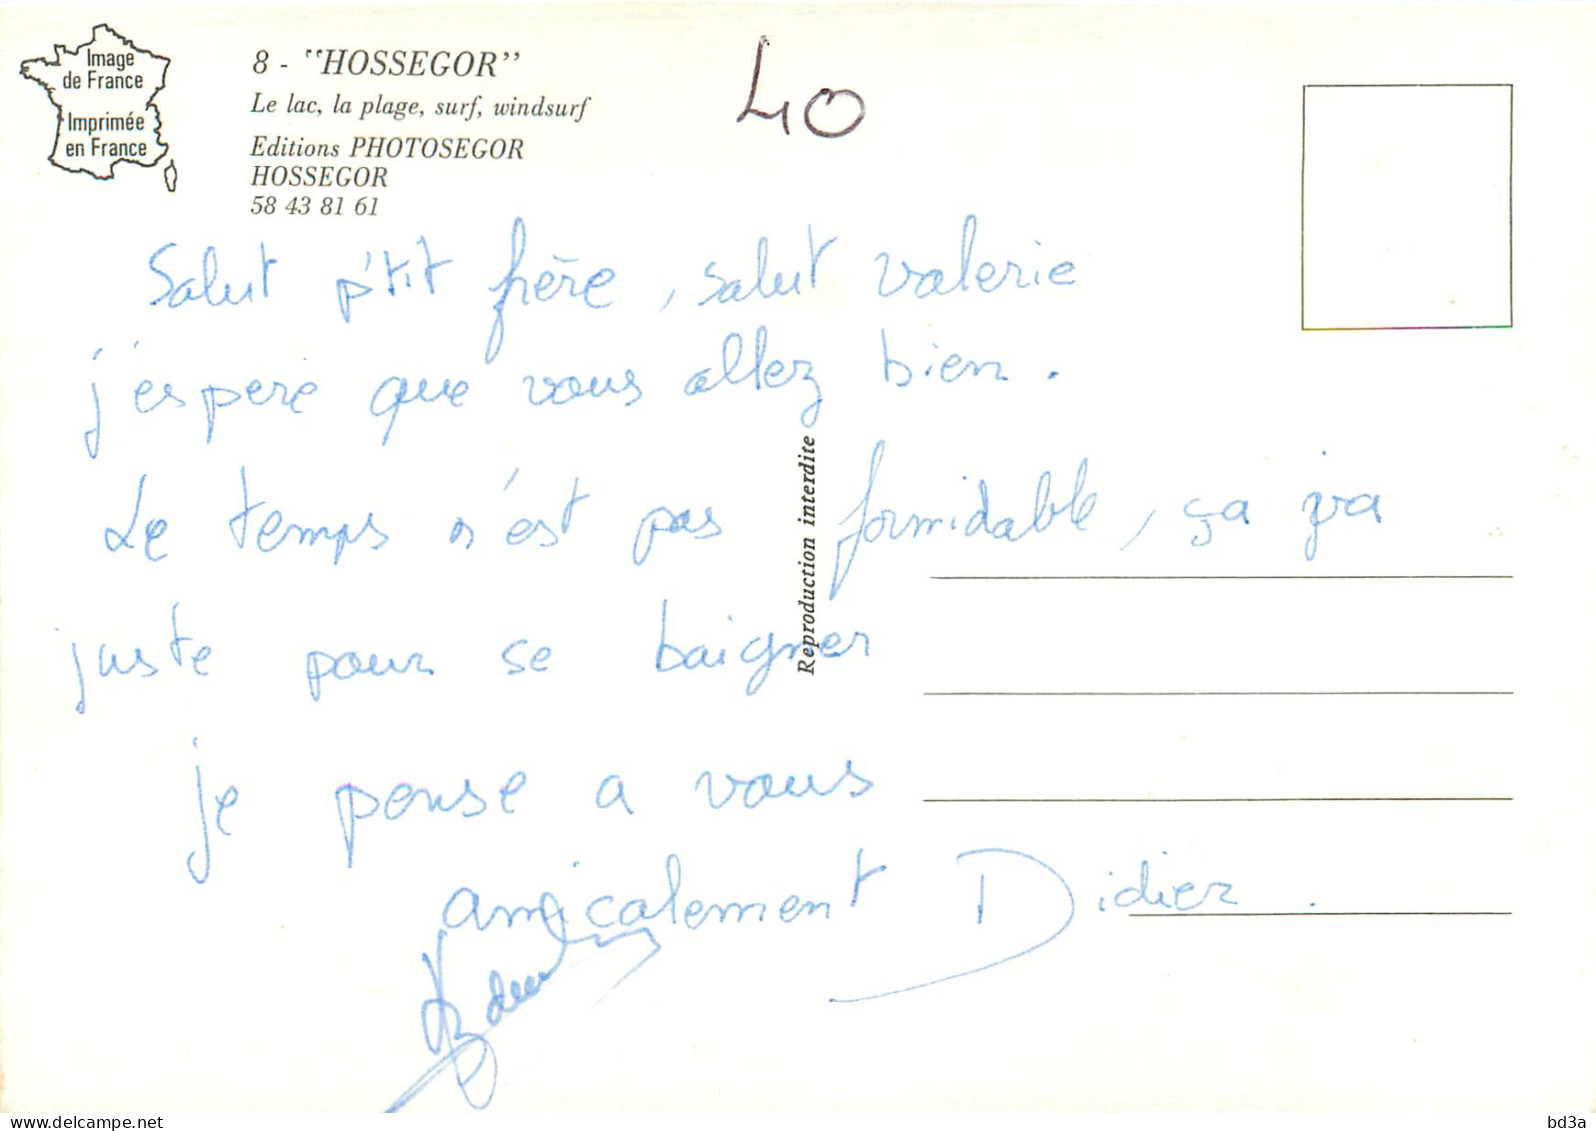 Image
de France
Imprimée
en France
8 - "HOSSEGOR"
Le lac, la plage, surf, windsurf
Editions PHOTOSEGOR
HOSSEGOR
58 43 81 61
40
Salut p'tit frère, salut valerie
j'éspere que vous allez bien.
Le temps n'est pas formidable, ça ira
juste pour se baigner
je pense a vous
amicalement Didier.
Reproduction interdite
www.delcampe.net
bd3a